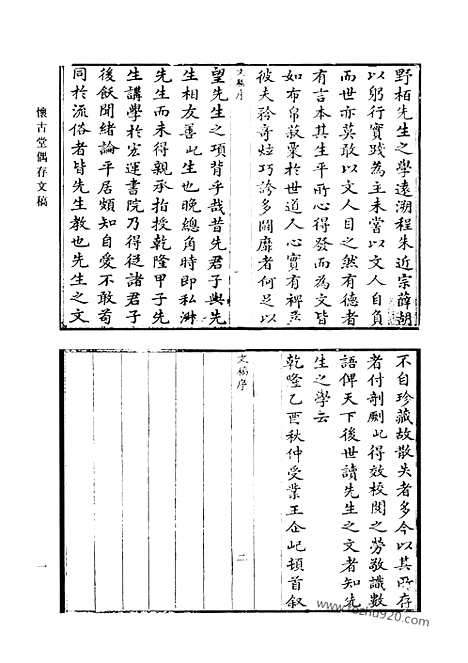 懷古堂偶存文稿
一
野栢先生之學遠溯程朱近宗薛胡
以躬行實踐為主未嘗以文人自負
而世亦莫敢以文人目之然有德者
有言本其生平所心得發而為文皆
如布帛菽粟於世道人心實有裨益
彼夫矜奇炫巧誇多鬬靡者何足以
文稿序
一
望先生之項背乎哉昔先君子與先
生相友善屺生也晚總角時即私淑
先生而未得親承指授乾隆甲子先
生講學於宏運書院乃得從諸君子
後飫聞緒論平居頗知自愛不敢苟
同於流俗者皆先生教也先生之文
不自珍藏故散失者多今以其所存
者付剞劂屺得效校閱之勞敬識數
語俾天下後世讀先生之文者知先
生之學云
乾隆乙酉秋仲受業王企屺頓首敘
文稿序
二